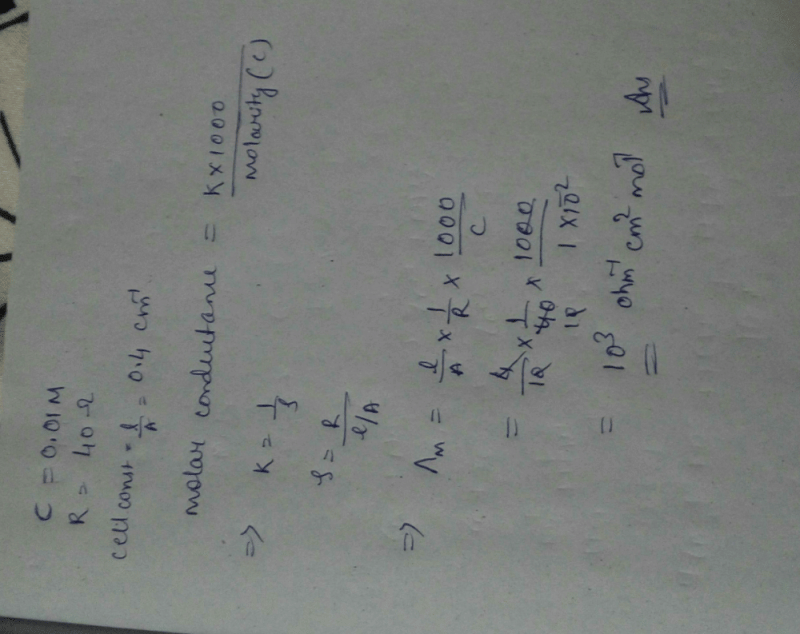 C = 0.01M
R = 40 Ω
cell const = l/A = 0.4 cm⁻¹
molar conductance = K×1000 / molarity(C)
=> K = 1/ρ
ρ = R / l/A
=> Λm = l/A × 1/R × 1000/C
= 4/10 × 1/40 × 1000 / 1×10⁻²
10
= 10³ ohm⁻¹ cm² mol⁻¹ Ans